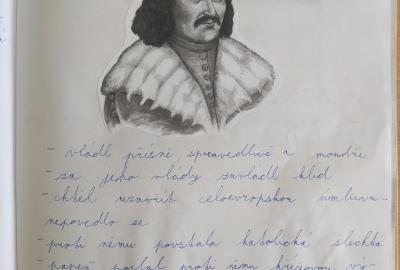 - vládl přísně, spravedlivě a moudře
- za jeho vlády zavládl klid
- chtěl uzavřít celoevropskou úmluvu -
nepovedlo se
- proti němu povstala katolická šlechta
- papež poslal proti němu křížovou vý-